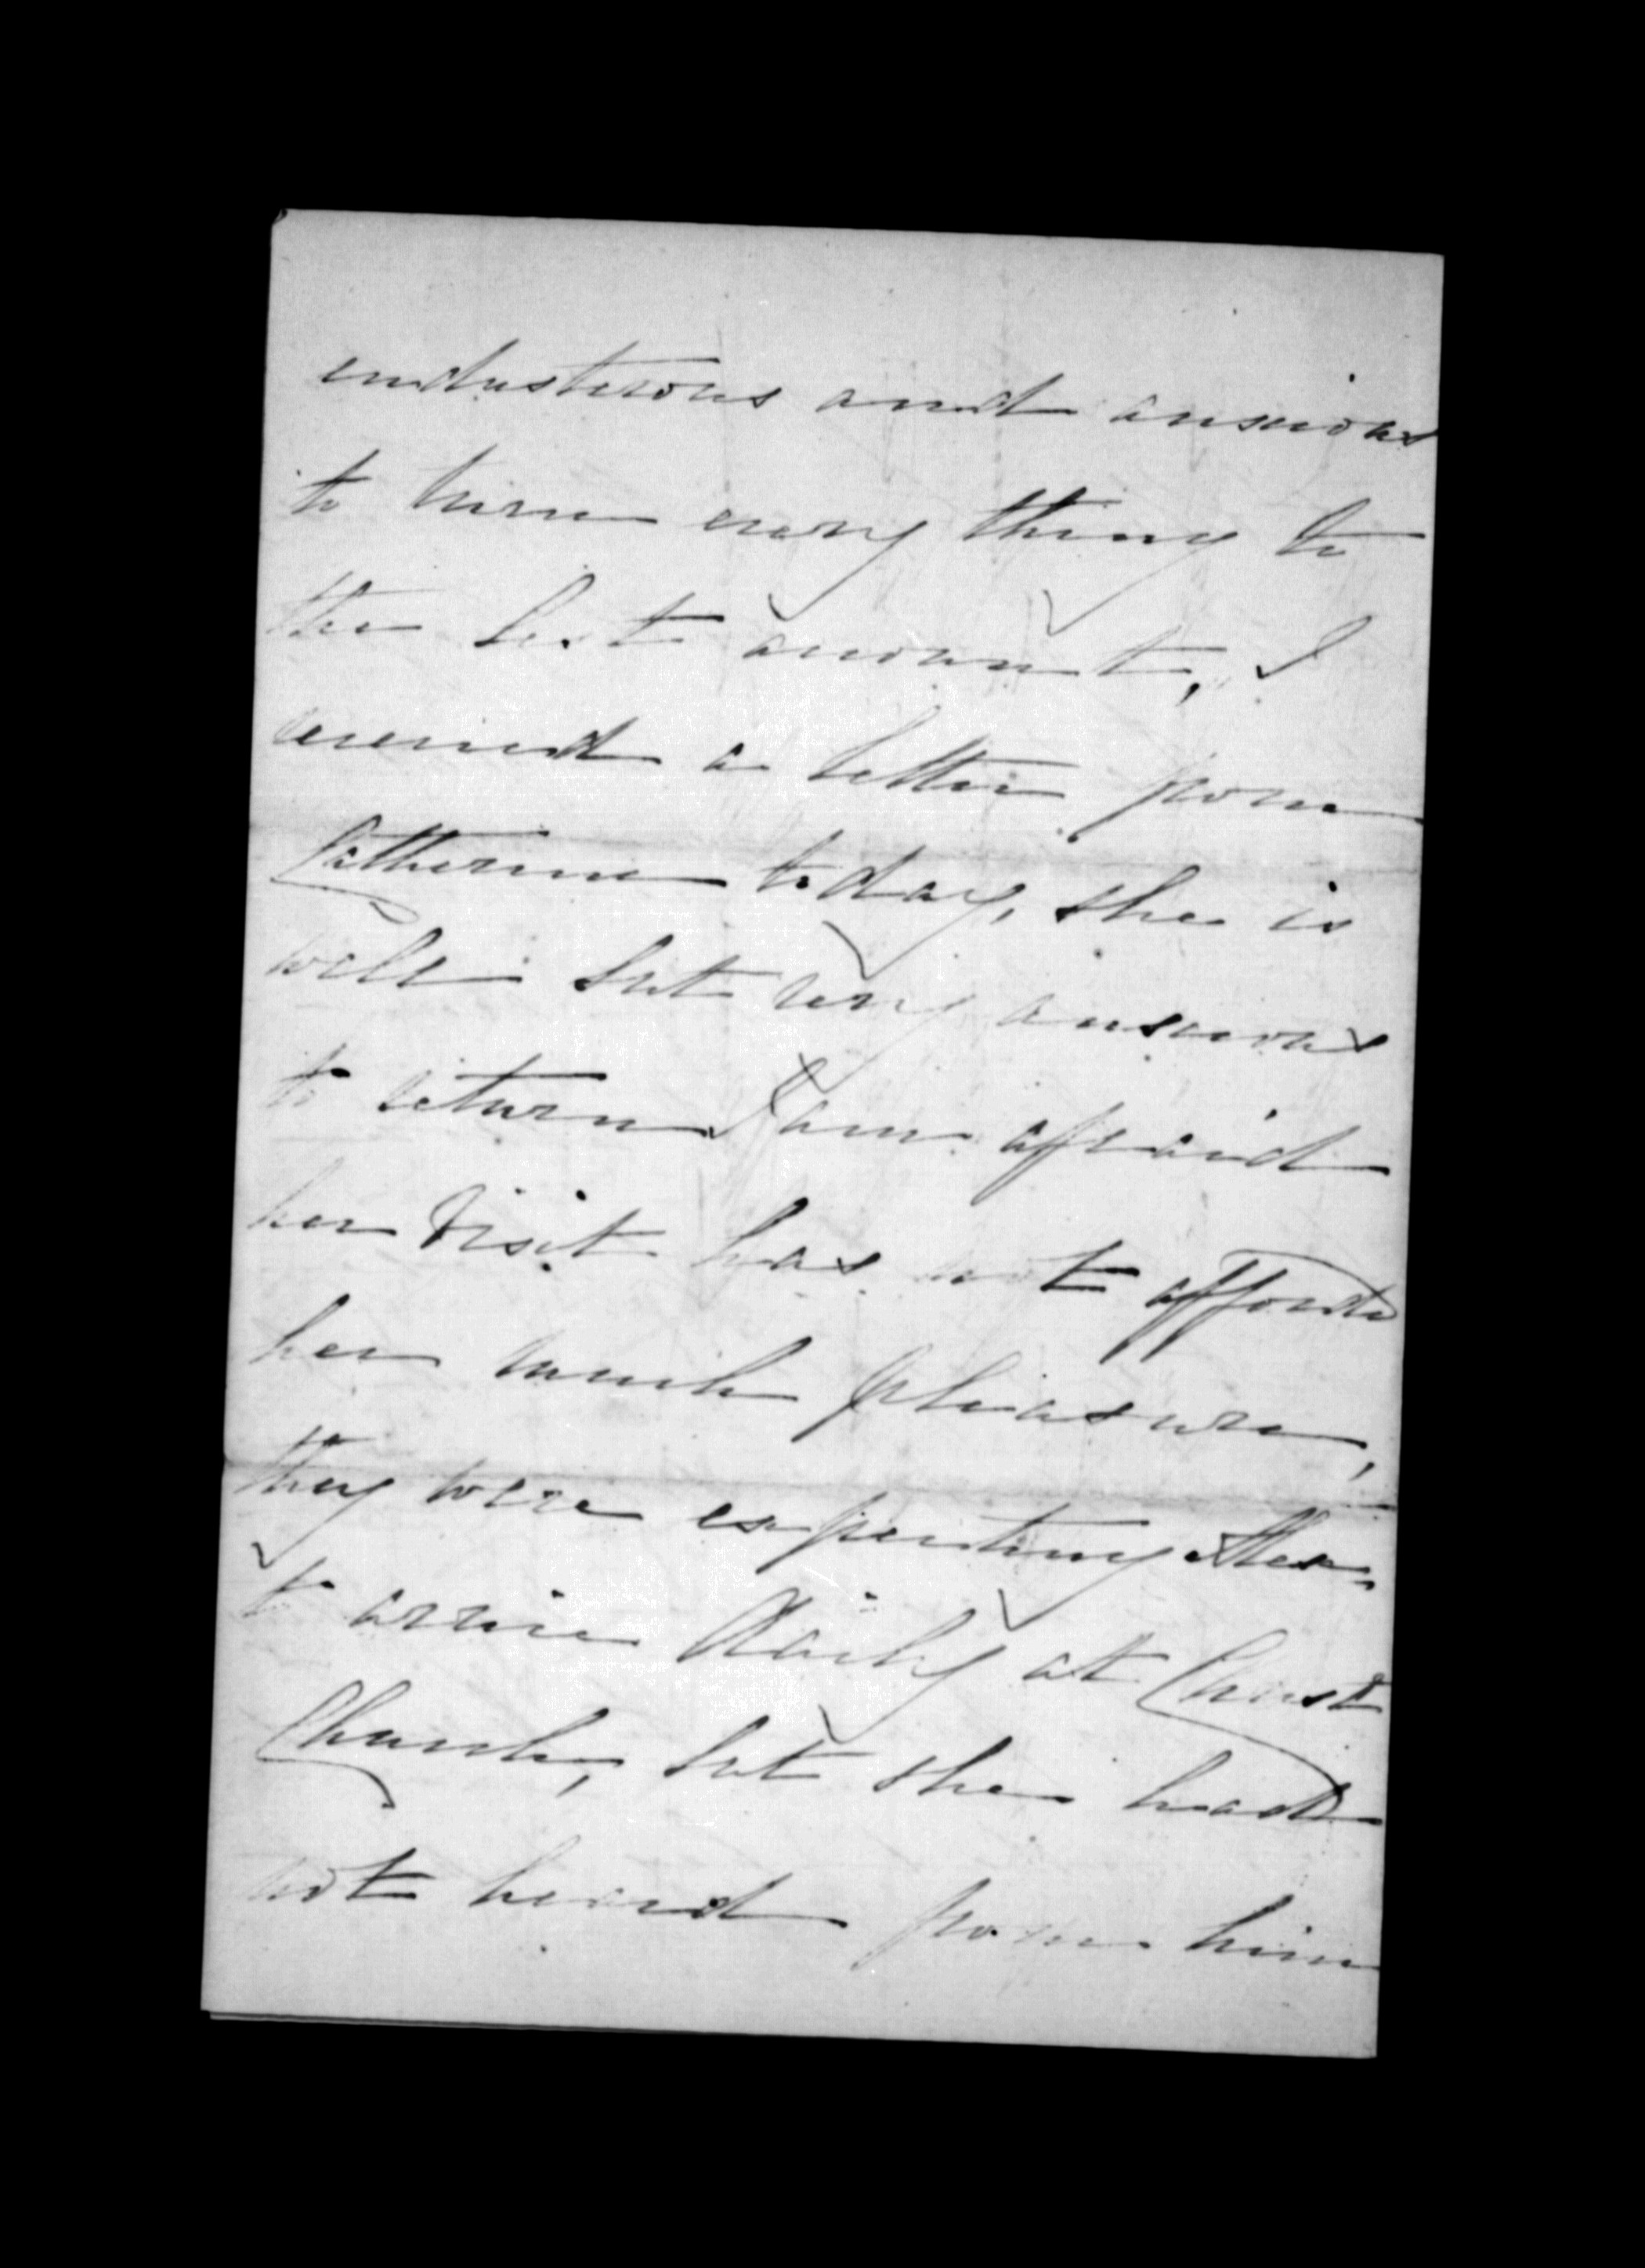 industerous and anxious
to turn every thing to
the best account, I
received a letter from
Catherine today, she is
well but very anxious
to return I am afraid
her visit has not afforded
her much pleasure,
they were expecting Alex
to arrive daily at Christ
Church, but she had
not heard from him